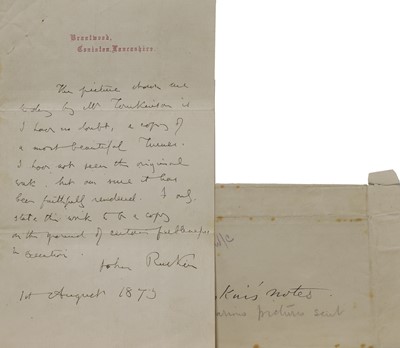 Brantwood,
Coniston, Lancashire.
The picture shown me
today by Mr Tomkinson is
I have no doubt, a copy of
a most beautiful Turner.
I have not seen the original
work but am sure it has
been faithfully rendered. I only
state this work to be a copy
on the ground of certain feeblenesses
in execution
John Ruskin
1st August 1873
kin's notes.
picture sent